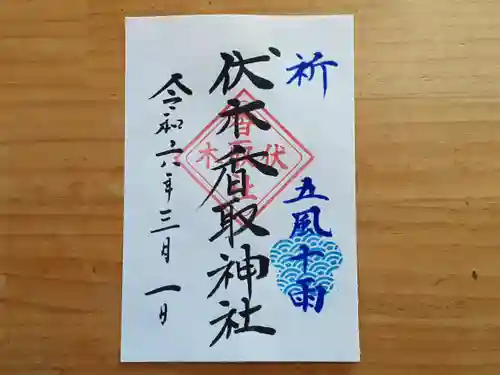 祈 五風十雨
伏木香取神社
令和六年三月一日
伏木
香取
社